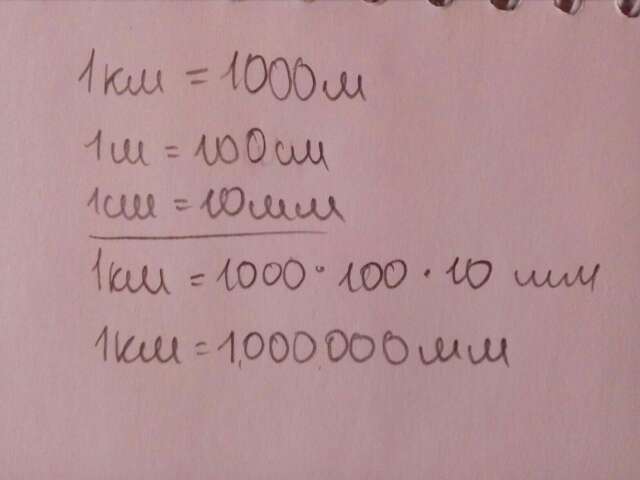 1км = 1000м
1м = 100см
1см = 10мм
1км = 1000·100·10 мм
1км = 1,000,000мм